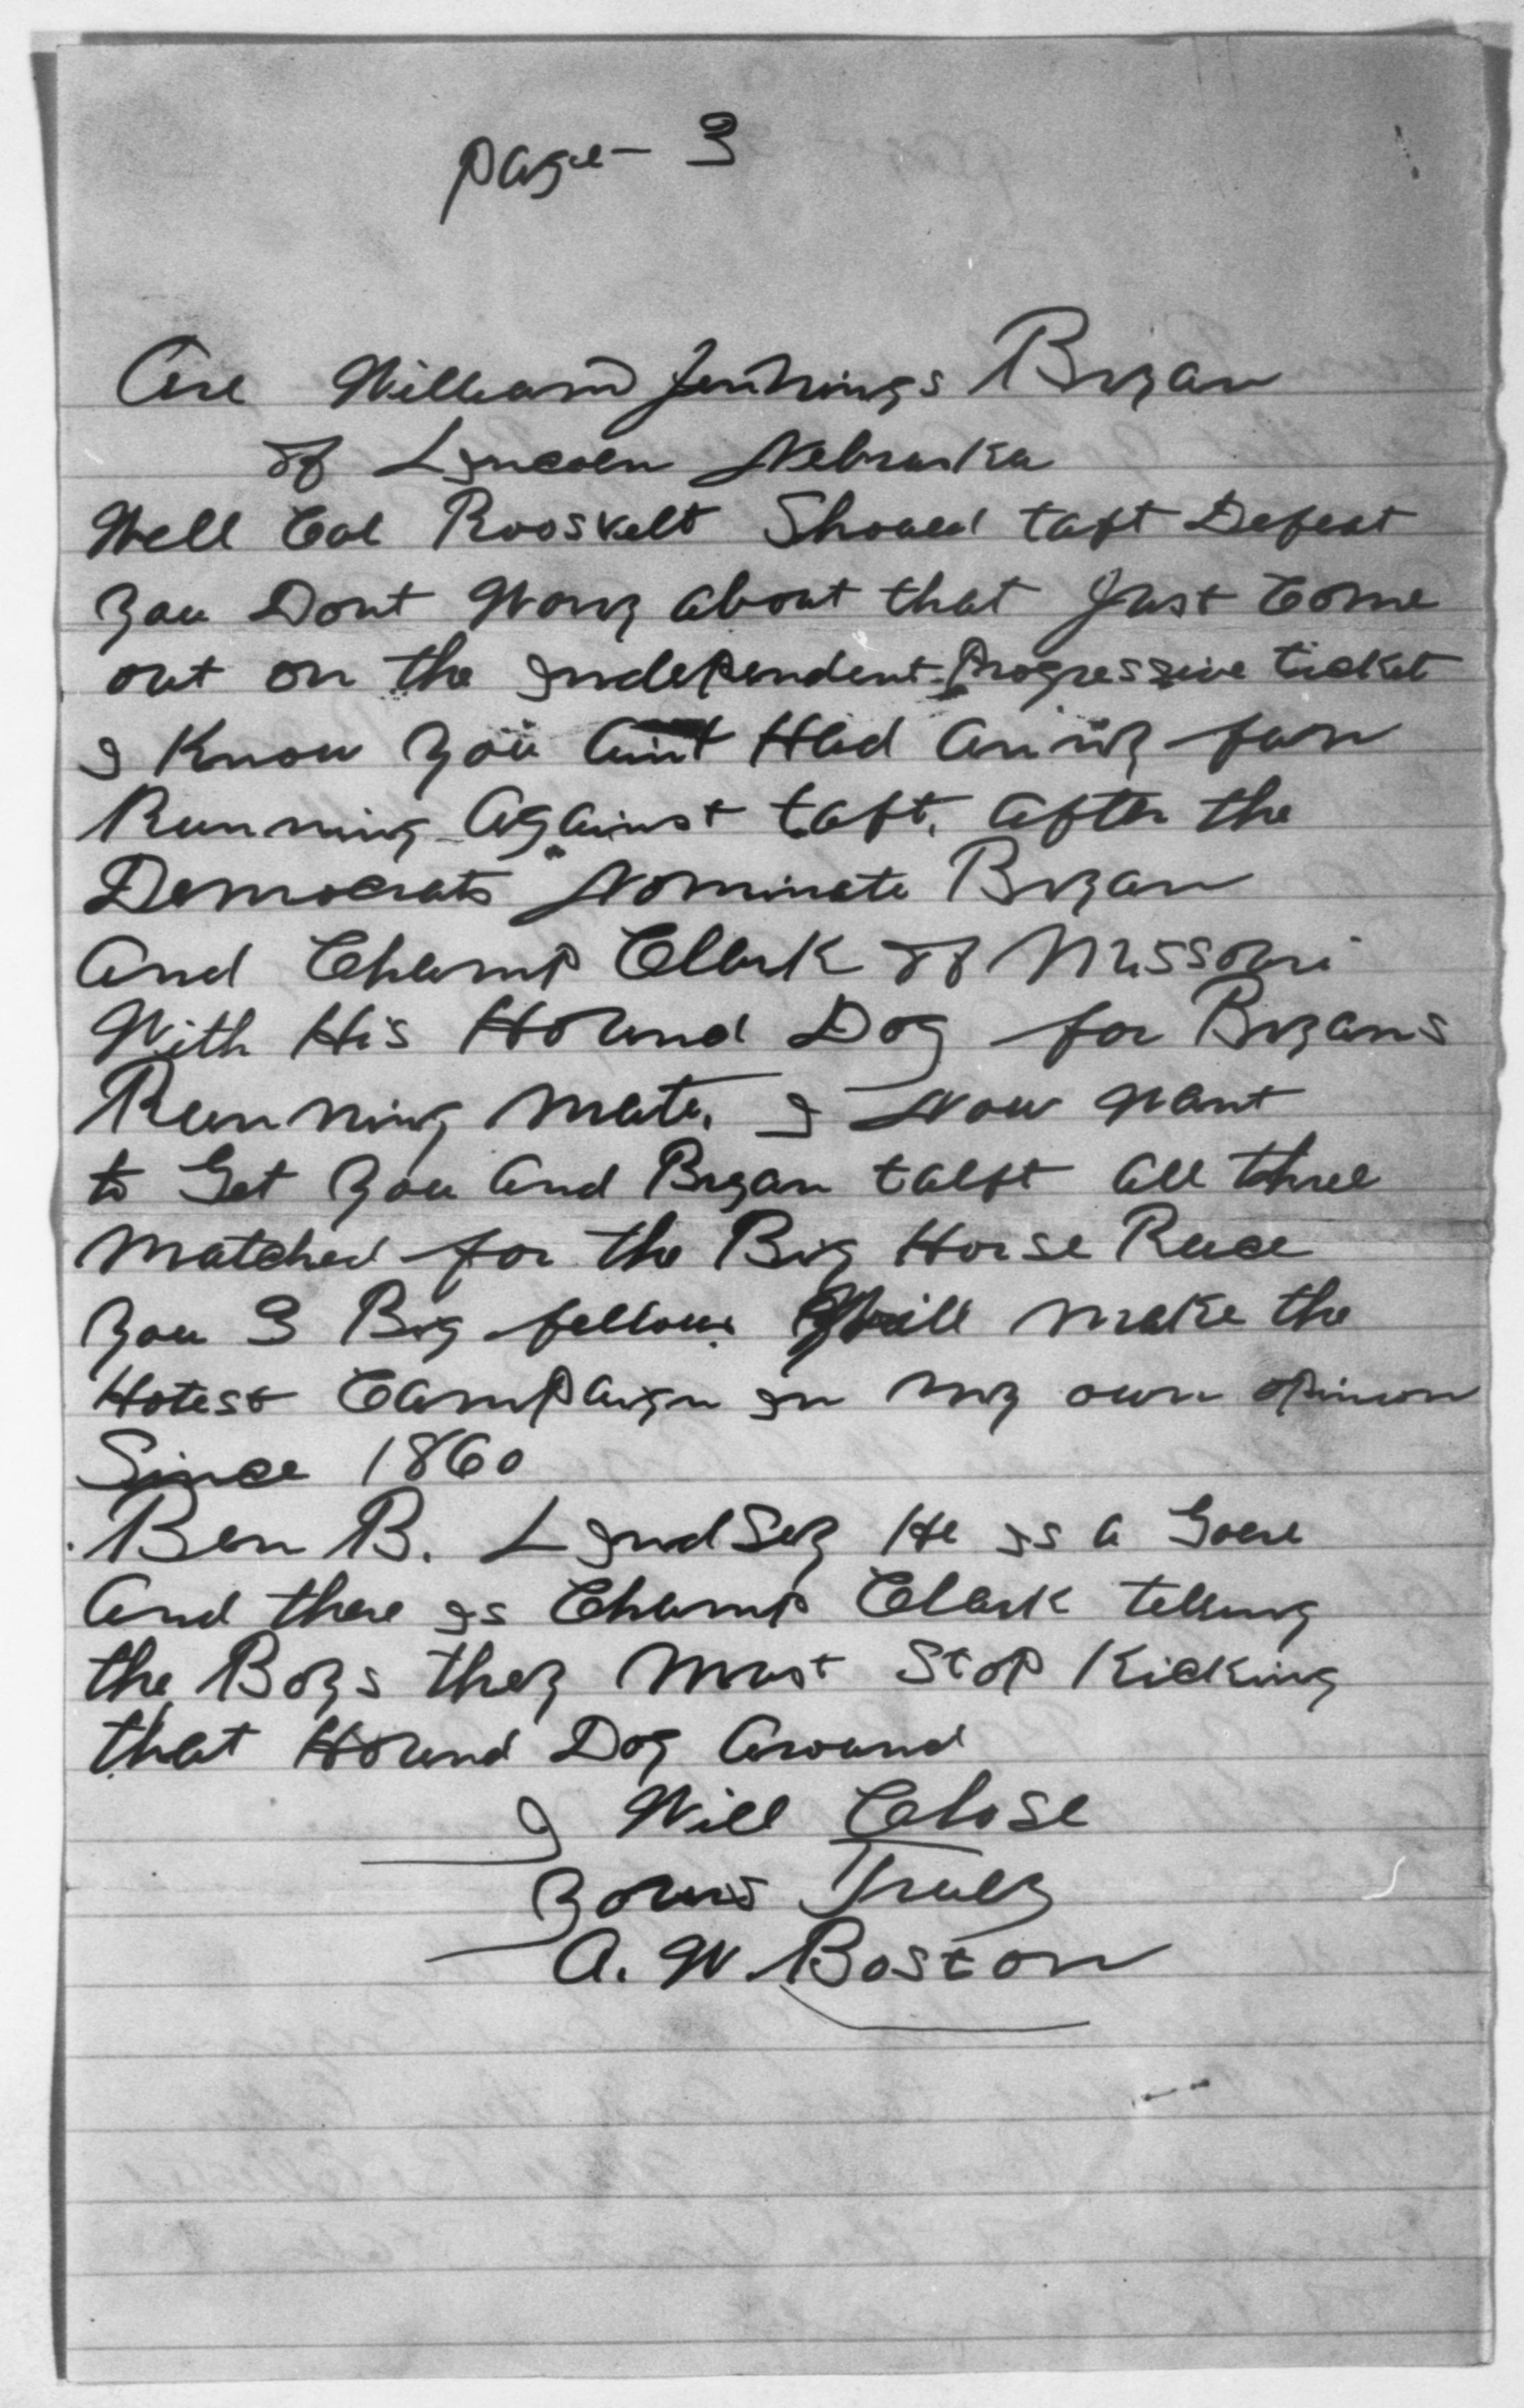 page - 3
Are William Jennings Bryan
of Lincoln Nebraska
Well Col Rooskelt Should taft Defeat
you Dont Wory about that Just Come
out on the Independent-Progressive ticket
I Know you Aint Had Anny fun
Running Against taft. after the
Democrats Nominate Bryan
And Champ Cllark of Missouri
With His Hound Dog for Bryans
Running Mate. I Now Want
to Get you And Bryan talft all three
Matched for the Big Horse Race
you 3 Big fellows Will Make the
Hotest Campaign in my own opinion
Since 1860
Ben B. Lindsey He is a Goere
And there is Champ Clark telling
the Boys they Must Stop Kicking
that Hound Dog Around
I Will Close
yours Truly
A. W. Boston